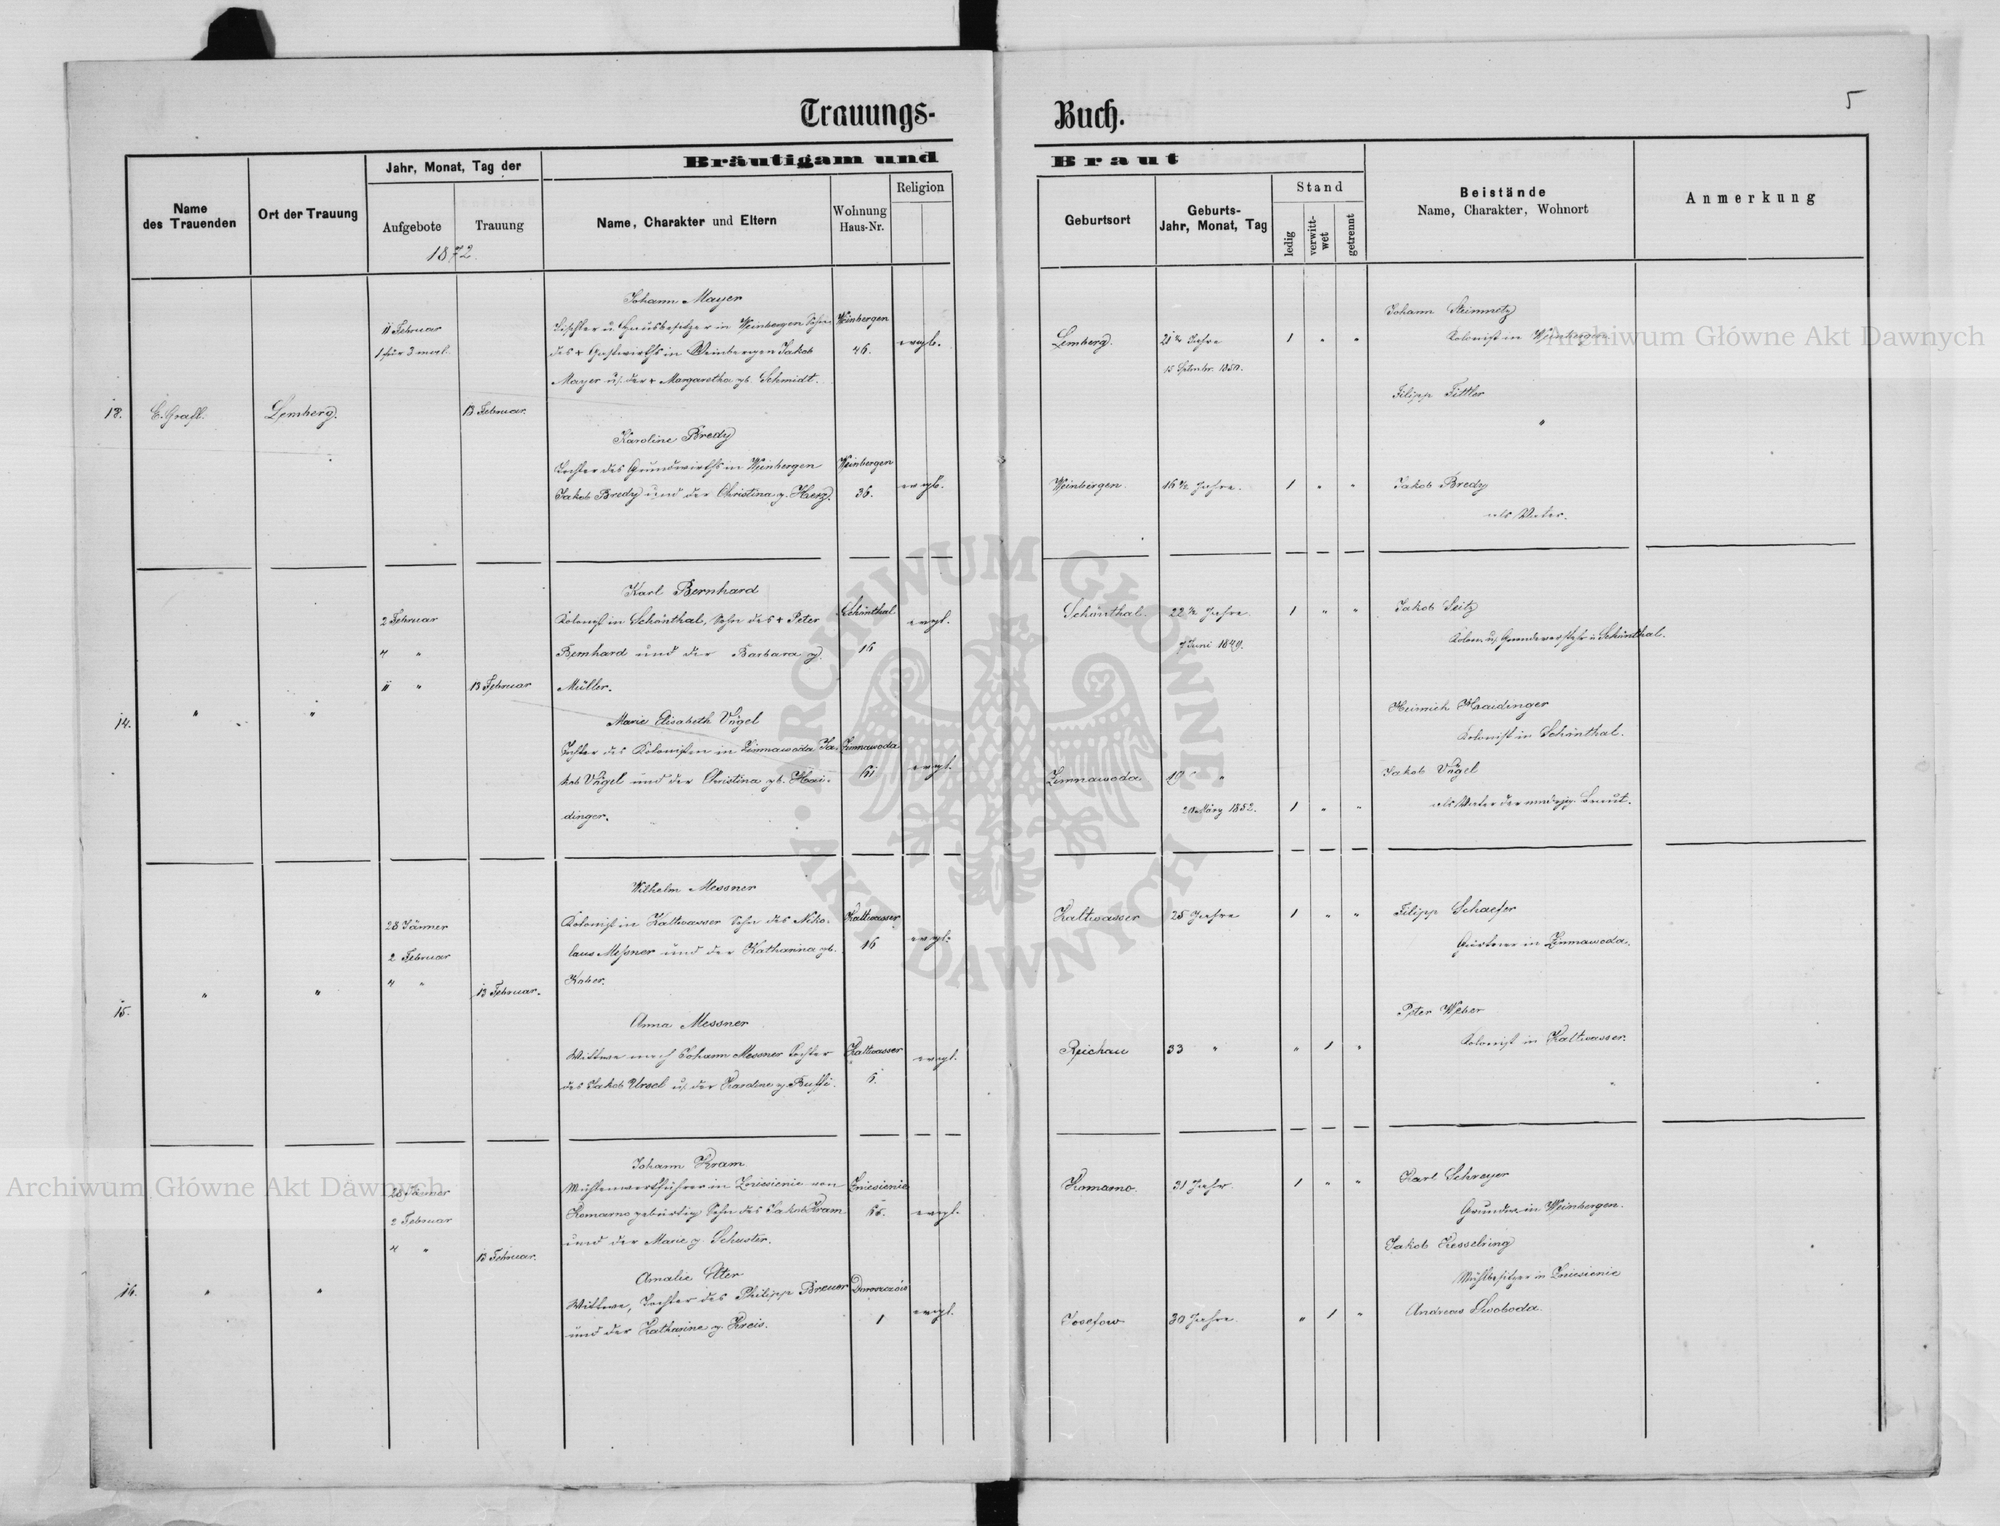 Trauungs-Buch.
5
Bräutigam und Braut
Name des Trauenden
Ort der Trauung
Jahr, Monat, Tag der
Aufgebote
Trauung
1872.
Name, Charakter und Eltern
Wohnung Haus-Nr.
Religion
Geburtsort
Geburts-Jahr, Monat, Tag
Stand
ledig
verwittwet
getrennt
Beistände
Name, Charakter, Wohnort
Anmerkung
13.
Lemberg.
11 Februar
1 für 3 mal.
13 Februar.
Johann Mayer
Tischler u. Hausbesitzer in Weinbergen Sohn
des + Gastwirths in Weinbergen Jakob
Mayer u. der + Margaretha gb. Schmidt.
Weinbergen
46.
evgl.
Lemberg.
21 ½ Jahre
1 " "
Johann Steinmetz
Kolonist in Weinbergen
Filipp Tittler
"
Karoline Bredy
Tochter des Grundwirths in Weinbergen
Jakob Bredy und der Christina g. Herz.
Weinbergen
36.
evgl.
Weinbergen.
16 ½ Jahre.
1 " "
Jakob Bredy
als Vater.
14.
" "
2 Februar
4 "
11 "
13 Februar
Karl Bernhard
Kolonist in Schönthal, Sohn des + Peter
Bernhard und der Barbara g.
Müller.
Schönthal
16
evgl.
Schönthal.
22 ½ Jahre.
Juni 1849.
1 " "
Jakob Seitz
Schönthal.
Heinrich Haidinger
Kolonist in Schönthal.
Marie Elisabeth Vogel
Tochter des Kolonisten in Zimnawoda Ja-
kob Vogel und der Christina gb. Hai-
dinger.
Zimnawoda
61
evgl.
Zimnawoda
19 "
20 März 1852.
1 " "
Jakob Vogel
als Vater der mindrj. Braut.
15.
" "
28 Jänner
2 Februar
4 "
13 Februar.
Wilhelm Messner
Kolonist in Kaltwasser Sohn des Niko-
laus Messner und der Katharina gb.
Kober.
Kaltwasser
16
evgl.
Kaltwasser
25 Jahre
1 " "
Filipp Schaefer
Gärtner in Zimnawoda.
Peter Weber
Kolonist in Kaltwasser.
"
Anna Messner
Wittwe nach Johann Messner Tochter
des Jakob Ursel u. der Karoline g.
Kaltwasser
6.
evgl.
Reichau
33 "
" 1 "
16.
" "
28 Jänner
2 Februar
4 "
13 Februar.
Johann Kram
Mühlenwerkführer in Zniesienie von
Komarno gebürtig Sohn des Jakob Kram
und der Marie g. Schuster.
Zniesienie
evgl.
Komarno.
31 Jahr.
1 " "
Karl Schreyer
Grundw. in Weinbergen.
Jakob Kesselring
Mühlbesitzer in Zniesienie
Andreas Swoboda.
Amalie Etter
Wittwe, Tochter des Philipp Breuer
und der Katharine g. Kreis.
1
evgl.
Josefow
30 Jahre.
" 1 "
Archiwum Główne Akt Dawnych
Archiwum Główne Akt Dawnych
ARCHIWUM GŁÓWNE AKT DAWNYCH